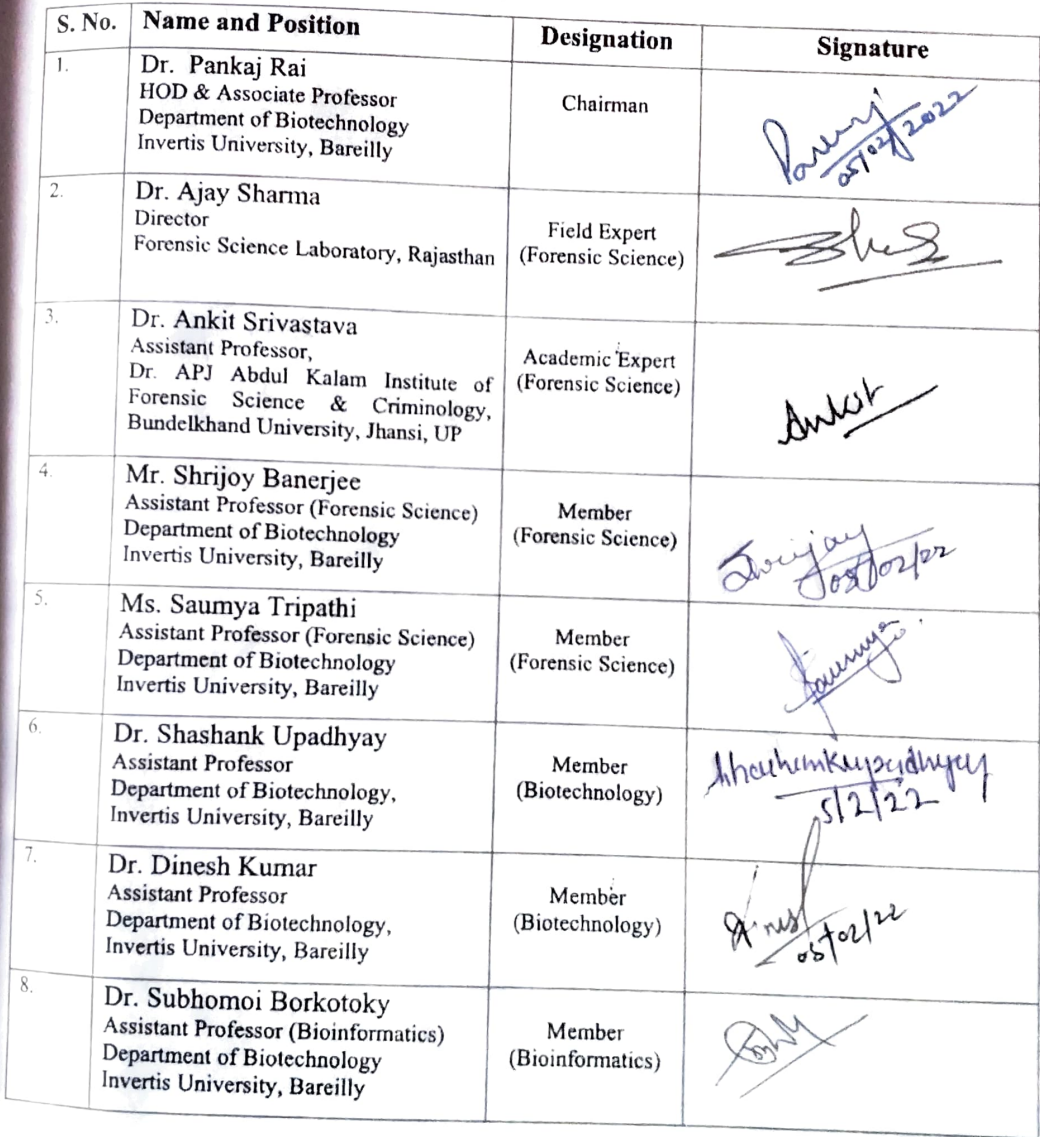 S. No. Name and Position Designation Signature
1.
Dr. Pankaj Rai
HOD & Associate Professor
Department of Biotechnology
Invertis University, Bareilly
Chairman
05/02/2022
2.
Dr. Ajay Sharma
Director
Forensic Science Laboratory, Rajasthan
Field Expert
(Forensic Science)
3.
Dr. Ankit Srivastava
Assistant Professor,
Dr. APJ Abdul Kalam Institute of
Forensic Science & Criminology,
Bundelkhand University, Jhansi, UP
Academic Expert
(Forensic Science)
Ankit
4.
Mr. Shrijoy Banerjee
Assistant Professor (Forensic Science)
Department of Biotechnology
Invertis University, Bareilly
Member
(Forensic Science)
5.
Ms. Saumya Tripathi
Assistant Professor (Forensic Science)
Department of Biotechnology
Invertis University, Bareilly
Member
(Forensic Science)
Saumya
6.
Dr. Shashank Upadhyay
Assistant Professor
Department of Biotechnology,
Invertis University, Bareilly
Member
(Biotechnology)
Shashankupadhyay
5/2/22
7.
Dr. Dinesh Kumar
Assistant Professor
Department of Biotechnology,
Invertis University, Bareilly
Member
(Biotechnology)
05/02/22
8.
Dr. Subhomoi Borkotoky
Assistant Professor (Bioinformatics)
Department of Biotechnology
Invertis University, Bareilly
Member
(Bioinformatics)